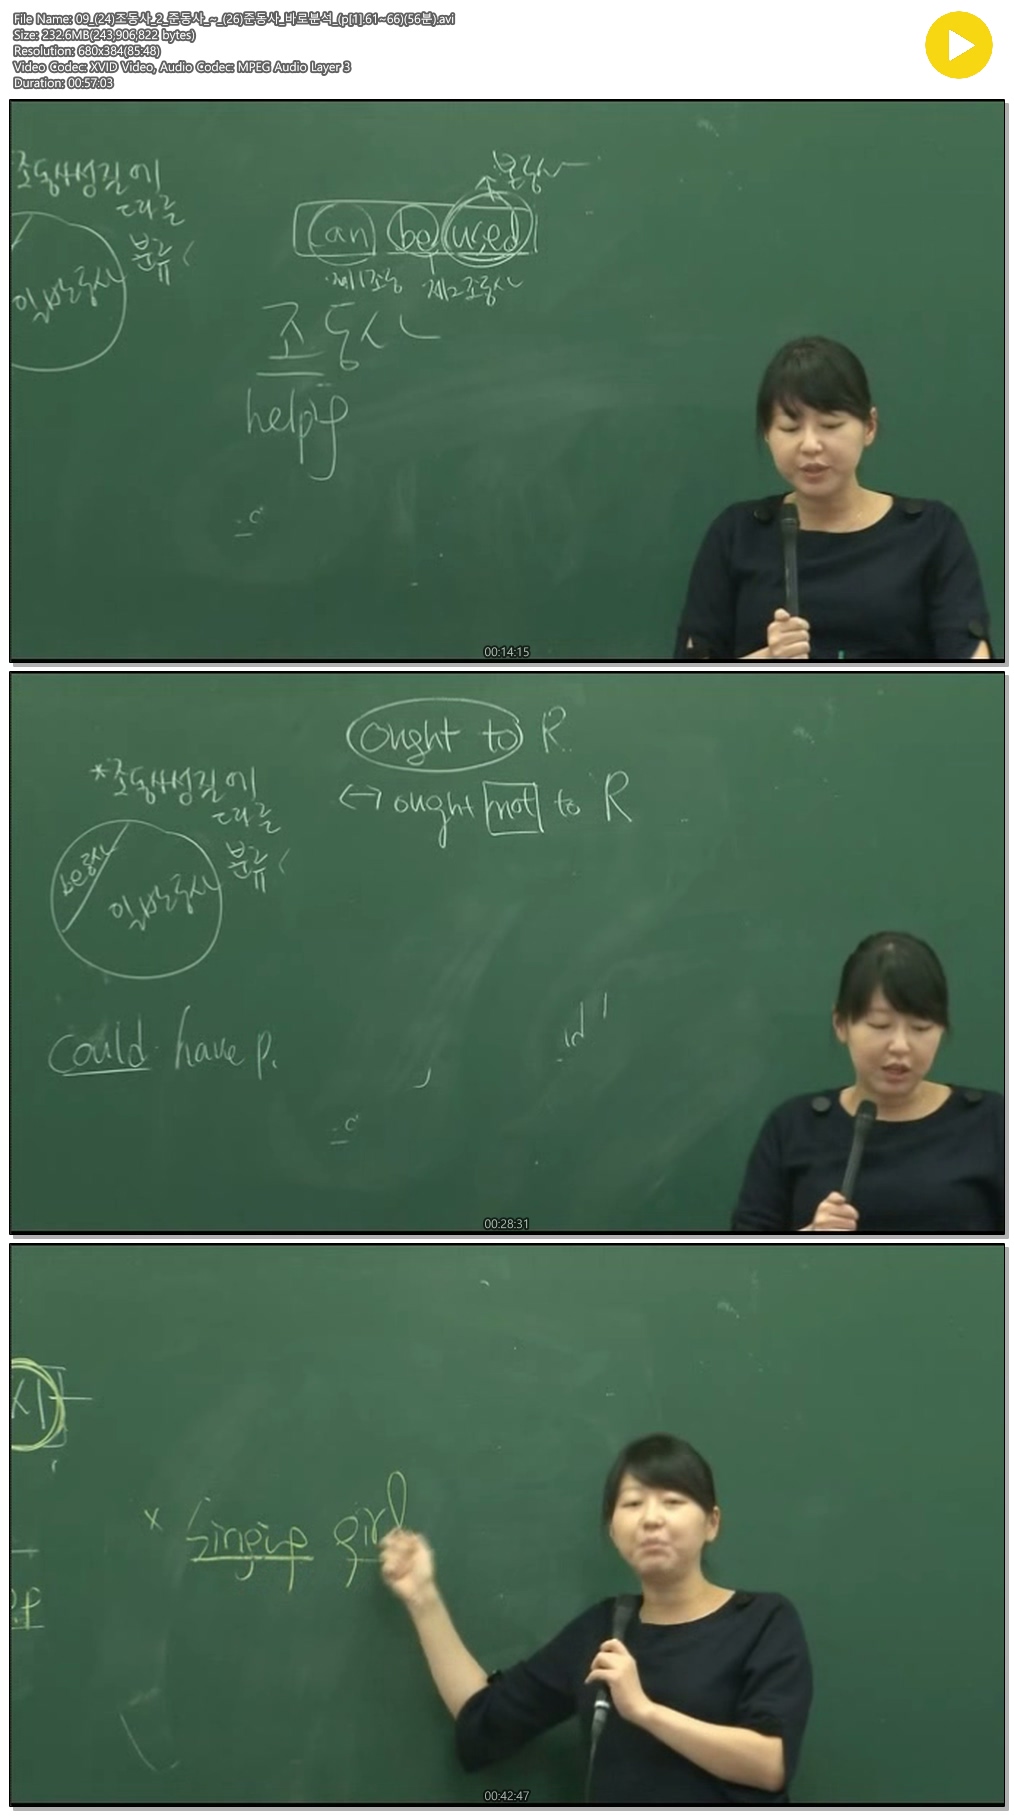 File Name: 09_(24)조동사_2_준동사_~_(26)준동사_바로분석_(p[1].61~66)(56분).avi
Size: 232.6MB(243,906,822 bytes)
Resolution: 680x384(85:48)
Video Codec: XVID Video, Audio Codec: MPEG Audio Layer 3
Duration: 00:57:03
조동사성질에
따른
분류
일반동사
본동사
can be used
제1조동 제2조동사
조동사
help
00:14:15
ought to R
*조동사성질에
따른
분류
↔ ought not to R
be동사
일반동사
could have p.
00:28:31
x singing girl
00:42:47